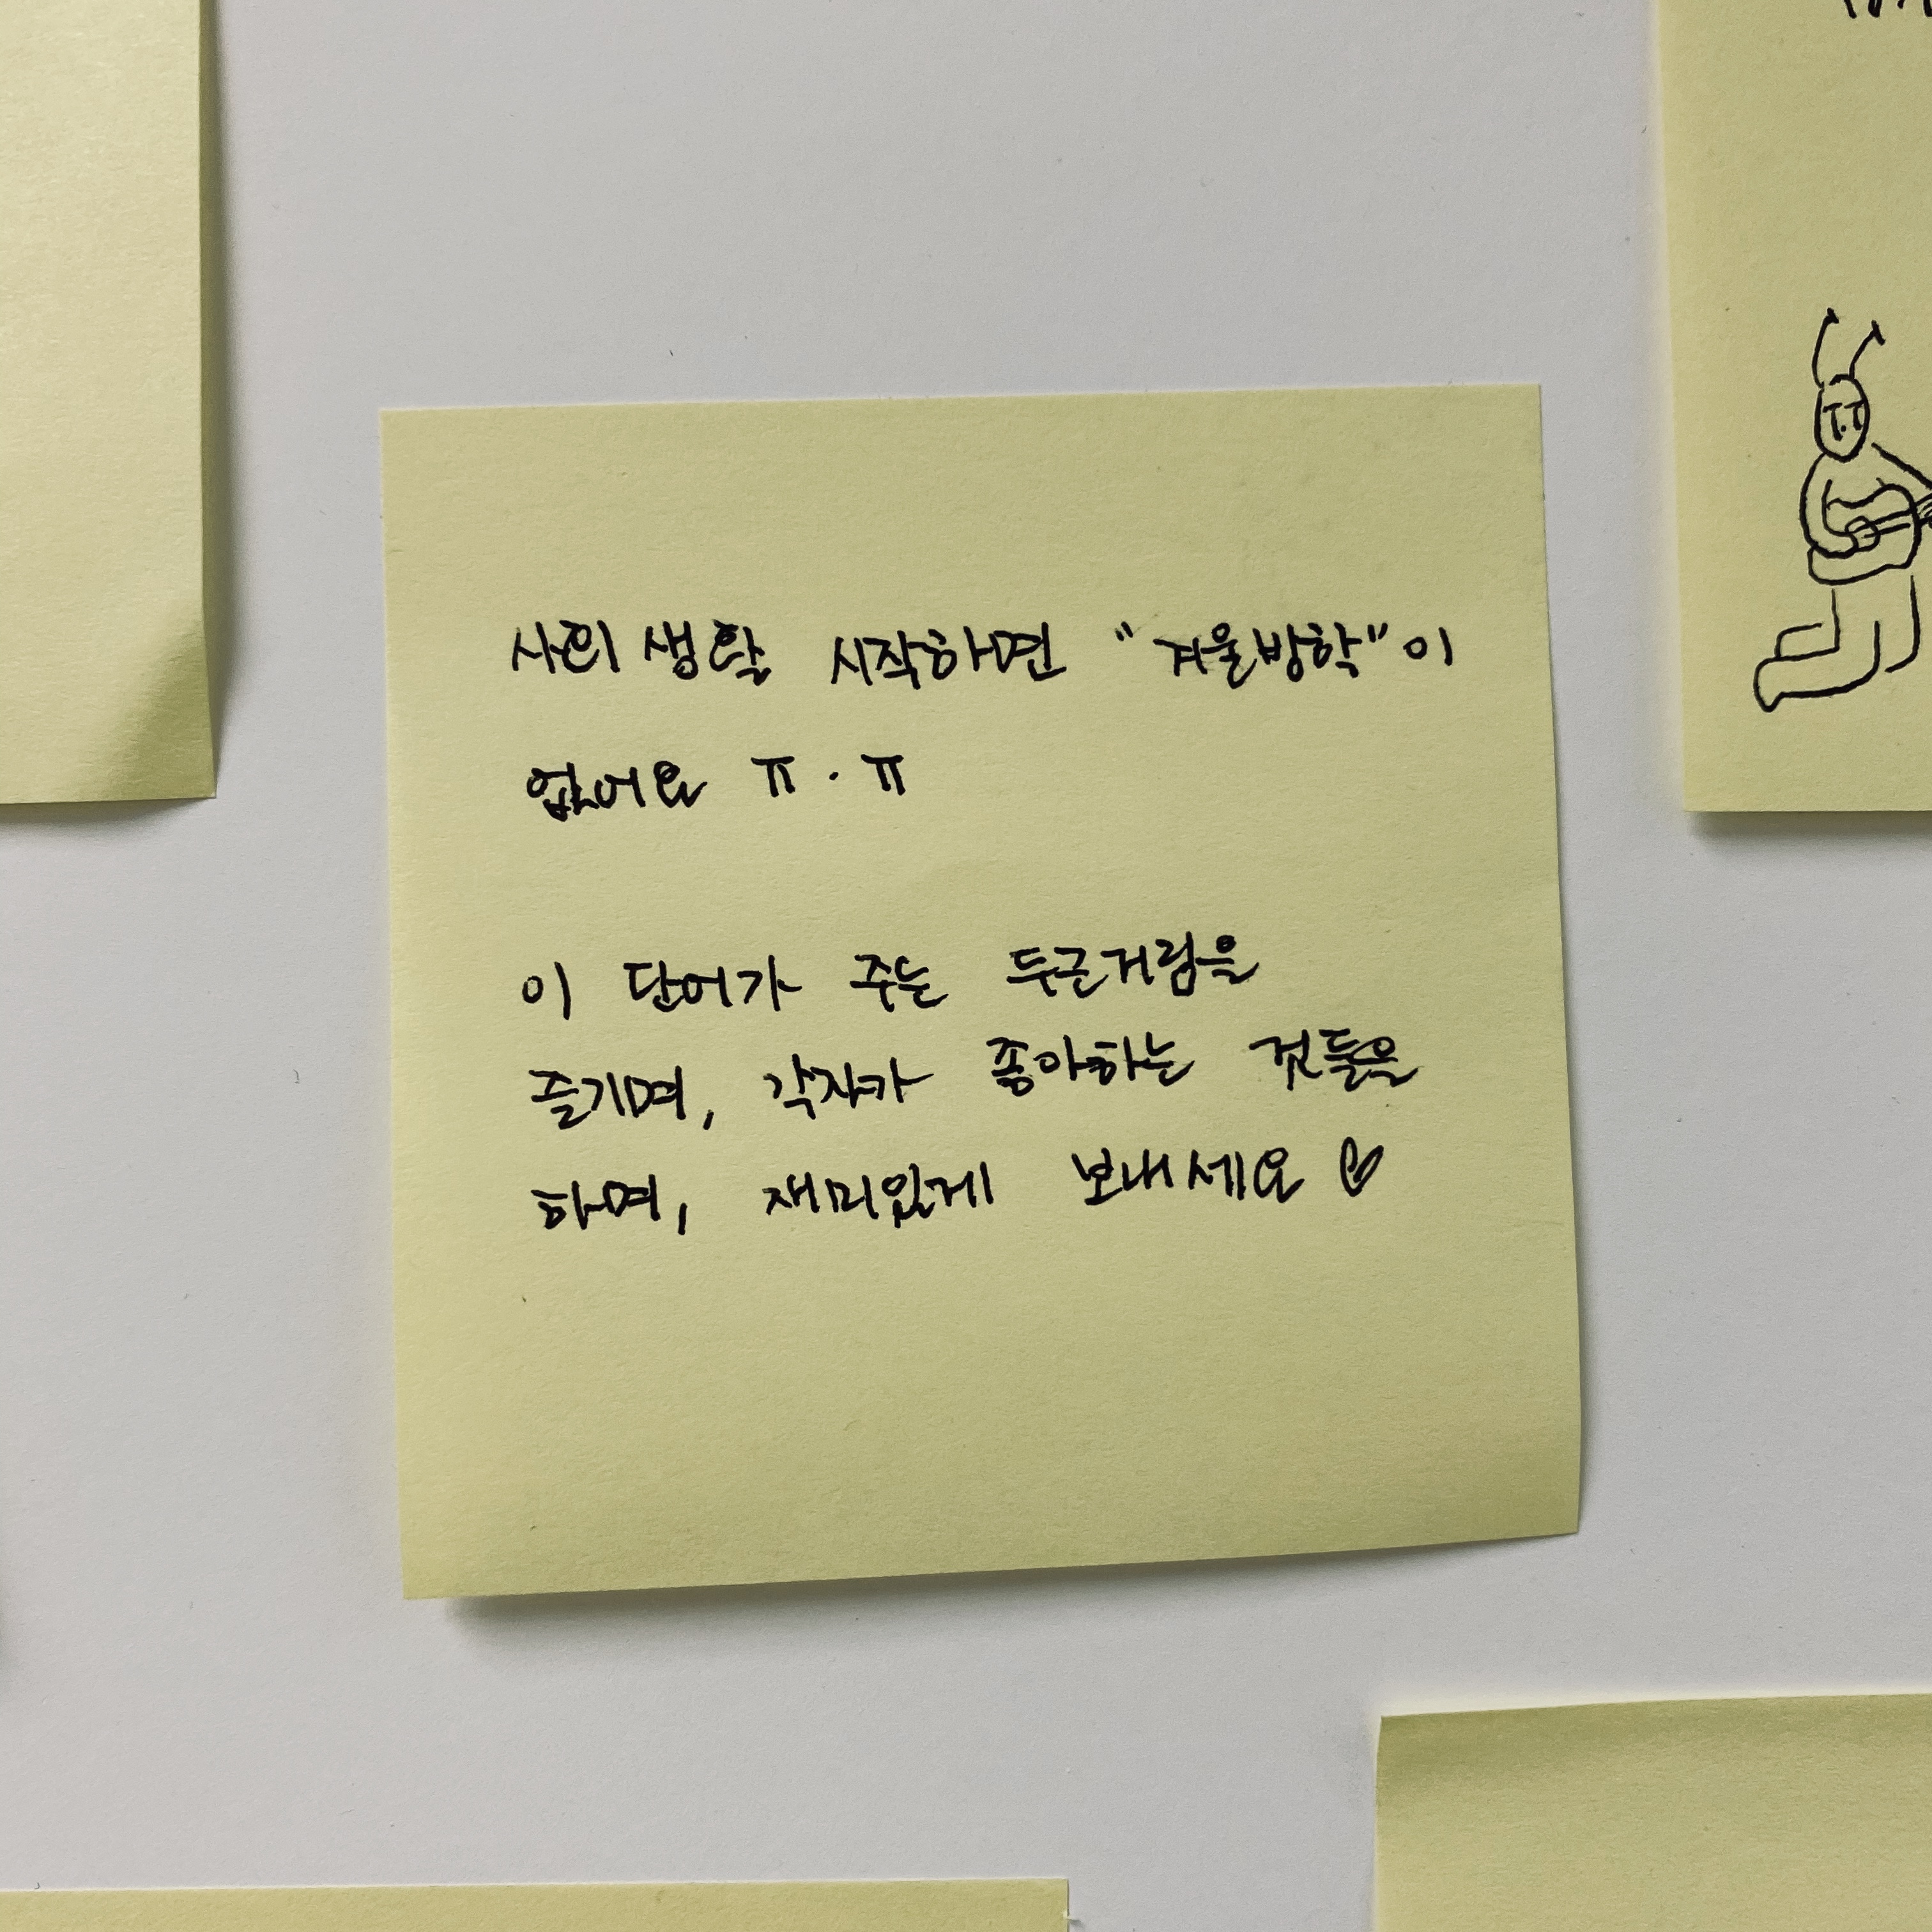 사회생활 시작하면 "겨울방학"이
없어요 ㅠ.ㅠ
이 단어가 주는 두근거림을
즐기며, 각자가 좋아하는 것들을
하며, 재미있게 보내세요 ♡